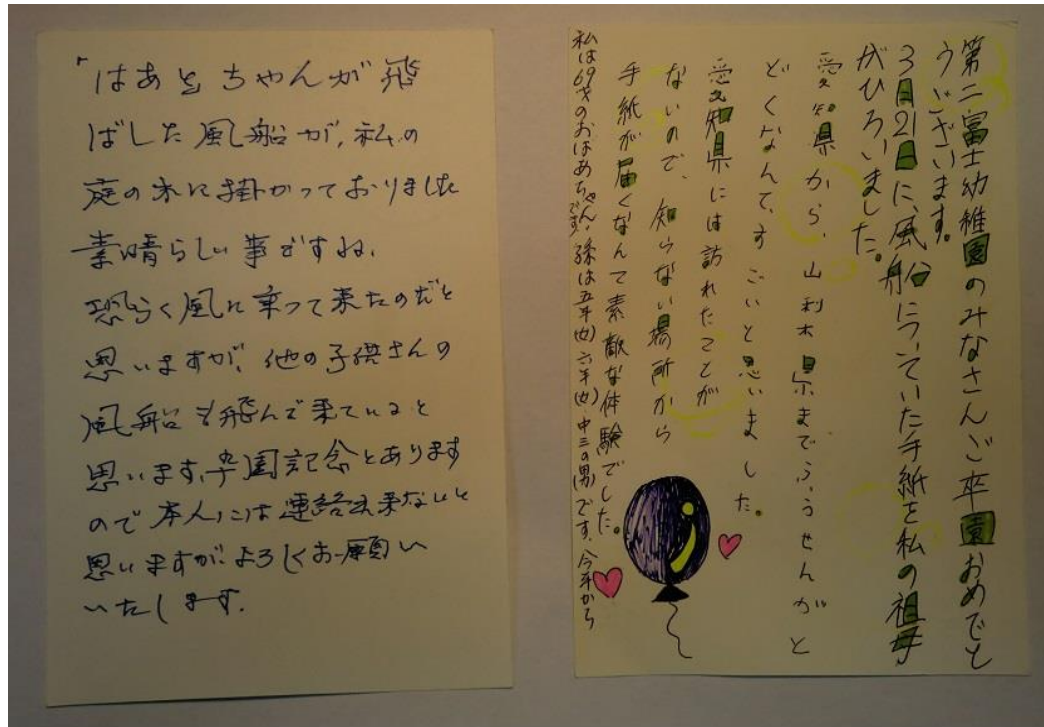 「はあとちゃんが飛
ばした風船が、私の
庭の木に掛かっておりました
素晴らしい事ですね、
恐らく風に乗って来たのだと
思いますが、他の子供さんの
風船も飛んで来ていると
思います、卒園記念とあります
ので本人には連絡出来ないと
思いますが、よろしくお願い
いたします.
第二富士幼稚園のみなさんご卒園おめでと
うございます。
3月21日に、風船についていた手紙を私の祖母
がひろいました。
愛知県から、山利木県までふうせんがと
どくなんて、すごいと思いました。
愛知県には訪れたことが
ないので、知らない場所から
手紙が届くなんて素敵な体験でした。
私は69才のおばあちゃんです、孫は五年(女)六年(女)、中三の(男)です、今年から